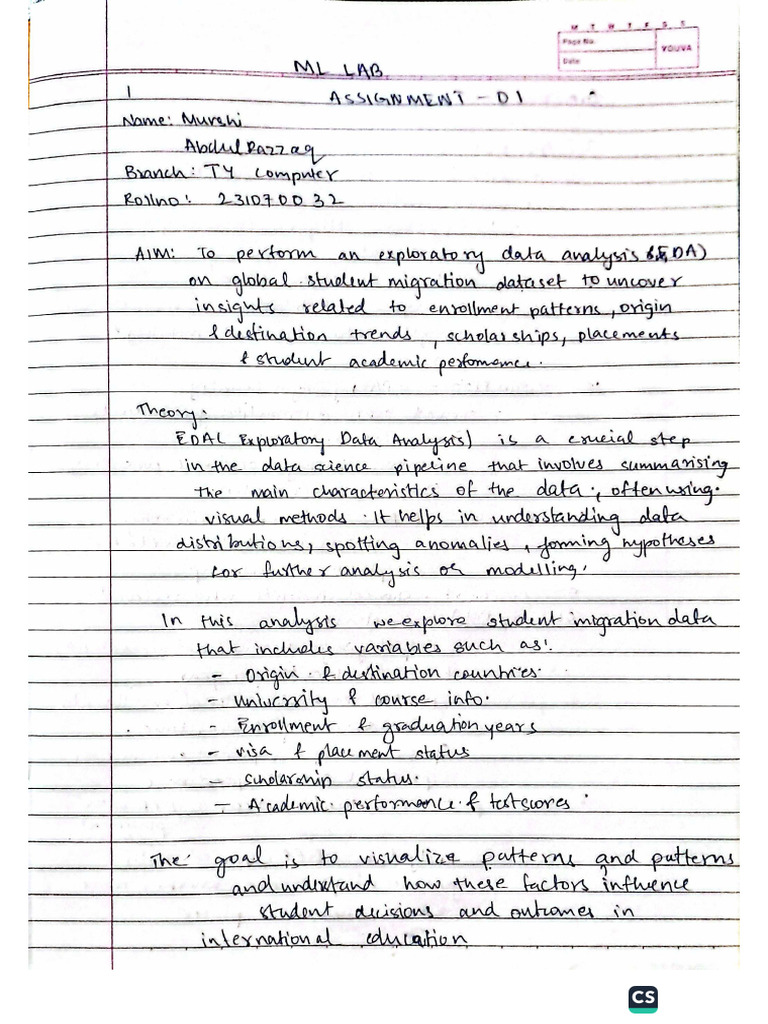 M T W T F S S
Page No.
YOUVA
Date
ML LAB
1
ASSIGNMENT - 01
Name: Murshi
Abdul Razzaq
Branch: TY Computer
Rollno: 231070032
AIM: To perform an exploratory data analysis (EDA)
on global student migration dataset to uncover
insights related to enrollment patterns, origin
& destination trends, scholarships, placements
& student academic perfomance.
Theory:
EDA( Exploratory Data Analysis) is a crucial step
in the data science pipeline that involves summarising
the main characteristics of the data, often using
visual methods. It helps in understanding data
distributions, spotting anomalies, forming hypotheses
for further analysis or modelling.
In this analysis we explore student migration data
that includes variables such as:
- Origin & destination countries.
- University & course info.
- Enrollment & graduation years
- visa & placement status
- Scholarship status.
- Academic performance & test scores
The goal is to visualize patterns and patterns
and understand how these factors influence
student decisions and outcomes in
international education
CS